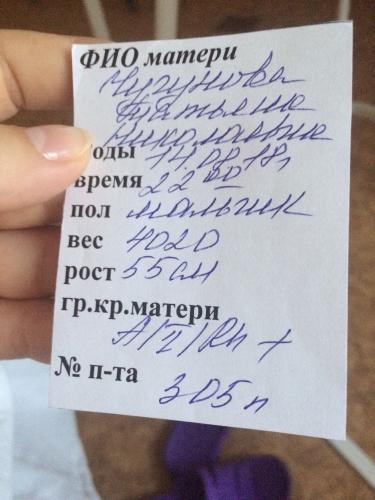 ФИО матери
Чугунова
Татьяна
Николаевна
оды 14.08.18г
время 22 00
пол мальчик
вес 4020
рост 55см
гр.кр.матери
A/II/Rh +
№ п-та
305п